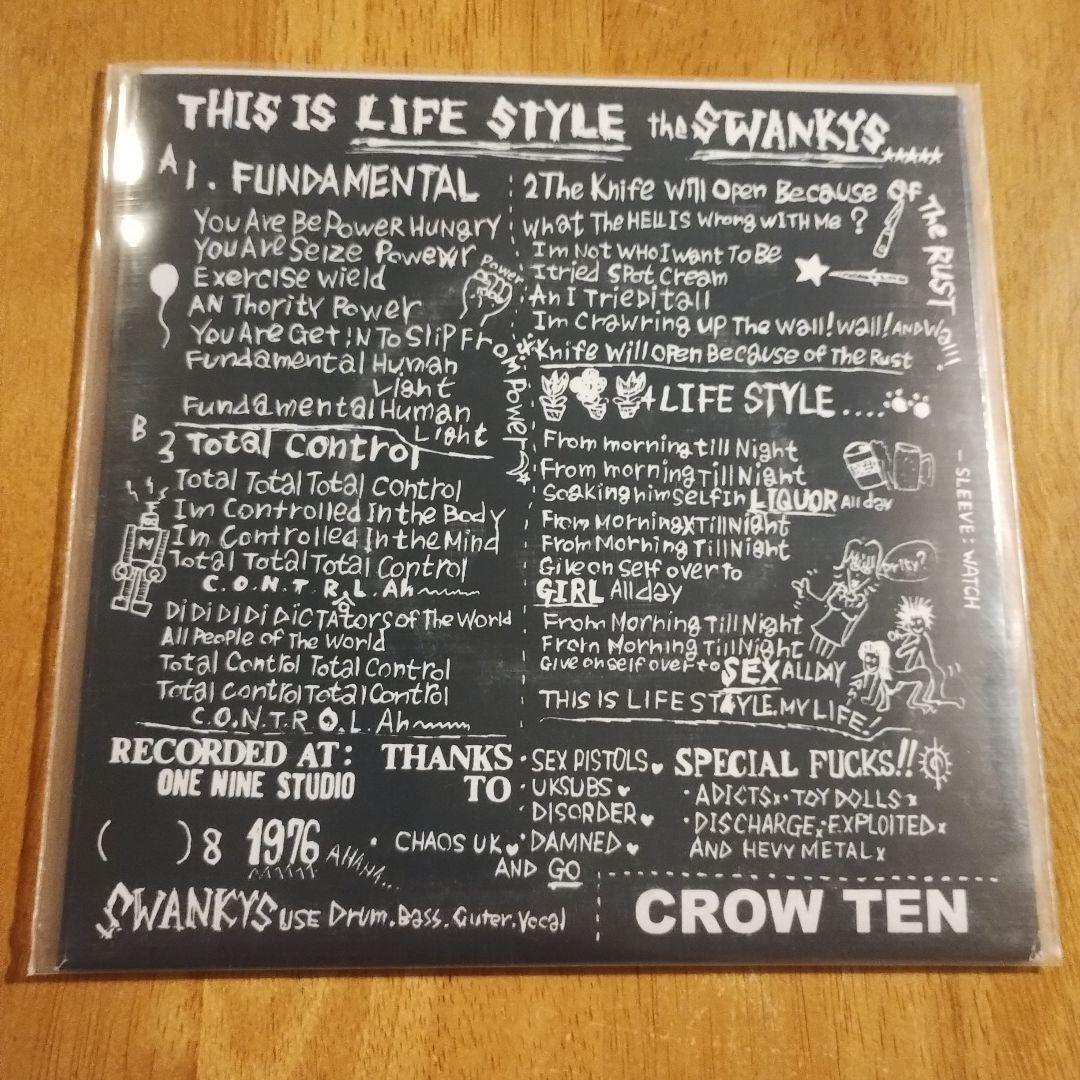 THIS IS LIFE STYLE the SWANKYS
A 1. FUNDAMENTAL
You Are Be Power Hungry
You Are Seize Powewr
Exercise wield
AN Thority Power
You Are Get !N To Slip From Power
Fundamental Human
Light
Fundamental Human
Light
Power
2 The Knife Will Open Because Of The RUST
what The HELL IS wrong WITH Me ?
Im Not WHO I want To Be
I tried Spot Cream
An I Tried it all
Im Crawring up The wall! wall! AND Wall
Knife Will Open Because of The Rust
B 3 Total Control
Total Total Total Control
Im Controlled In the Body
Im Controlled In the Mind
Total Total Total Control
C.O.N.T.R.O.L. Ah
Di Di Di Di Dic TAtors of The World
All People of The World
Total Control Total Control
Total Control Total Control
C.O.N.T.R.O.L. Ah
4 LIFE STYLE....
From morning till Night
From morning Till Night
Soaking him self In LIQUOR All day
From Morning Till Night
From Morning Till Night
Give on Self over to
GIRL All day
From Morning Till Night
From Morning Till Night
Give on self over to SEX ALL DAY
THIS IS LIFE STAYLE. MY LIFE!
– SLEEVE: WATCH
RECORDED AT:
ONE NINE STUDIO
( ) 8 1976 AHAHA...
THANKS
TO
· SEX PISTOLS
· UK SUBS
· DISORDER
· CHAOS UK
· DAMNED
AND GO
SPECIAL FUCKS!!
· ADICTSx · TOY DOLLSx
· DISCHARGEx · EXPLOITEDx
AND HEVY METALx
SWANKYS USE Drum. Bass. Guter. Vocal
CROW TEN